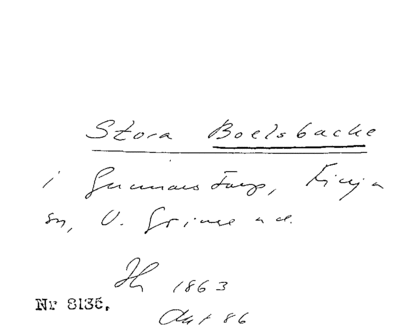 Stora Boelsbacke
i Gunnarstorp, Finja
sn, V. Göinge hd.
1863
Nr 8135.
Akt 86